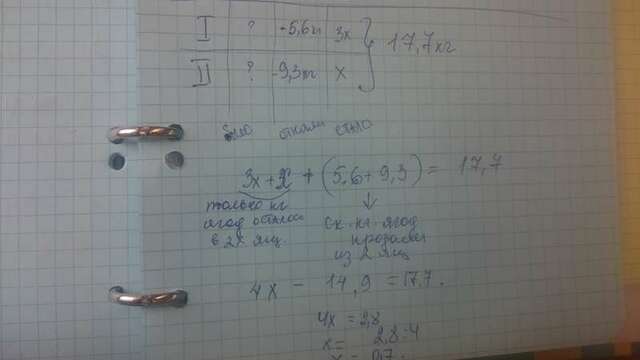 I ? -5,6кг 3x 17,7кг
II ? -9,3кг x
было стало
3x + x + (5,6 + 9,3) = 17,7
только кг
ягод остало
в 2х ящ.
ск. кг. ягод
продали
из 2 ящ
4x - 14,9 = 17,7.
4x = 2,8
x = 2,8:4
x = 0,7.